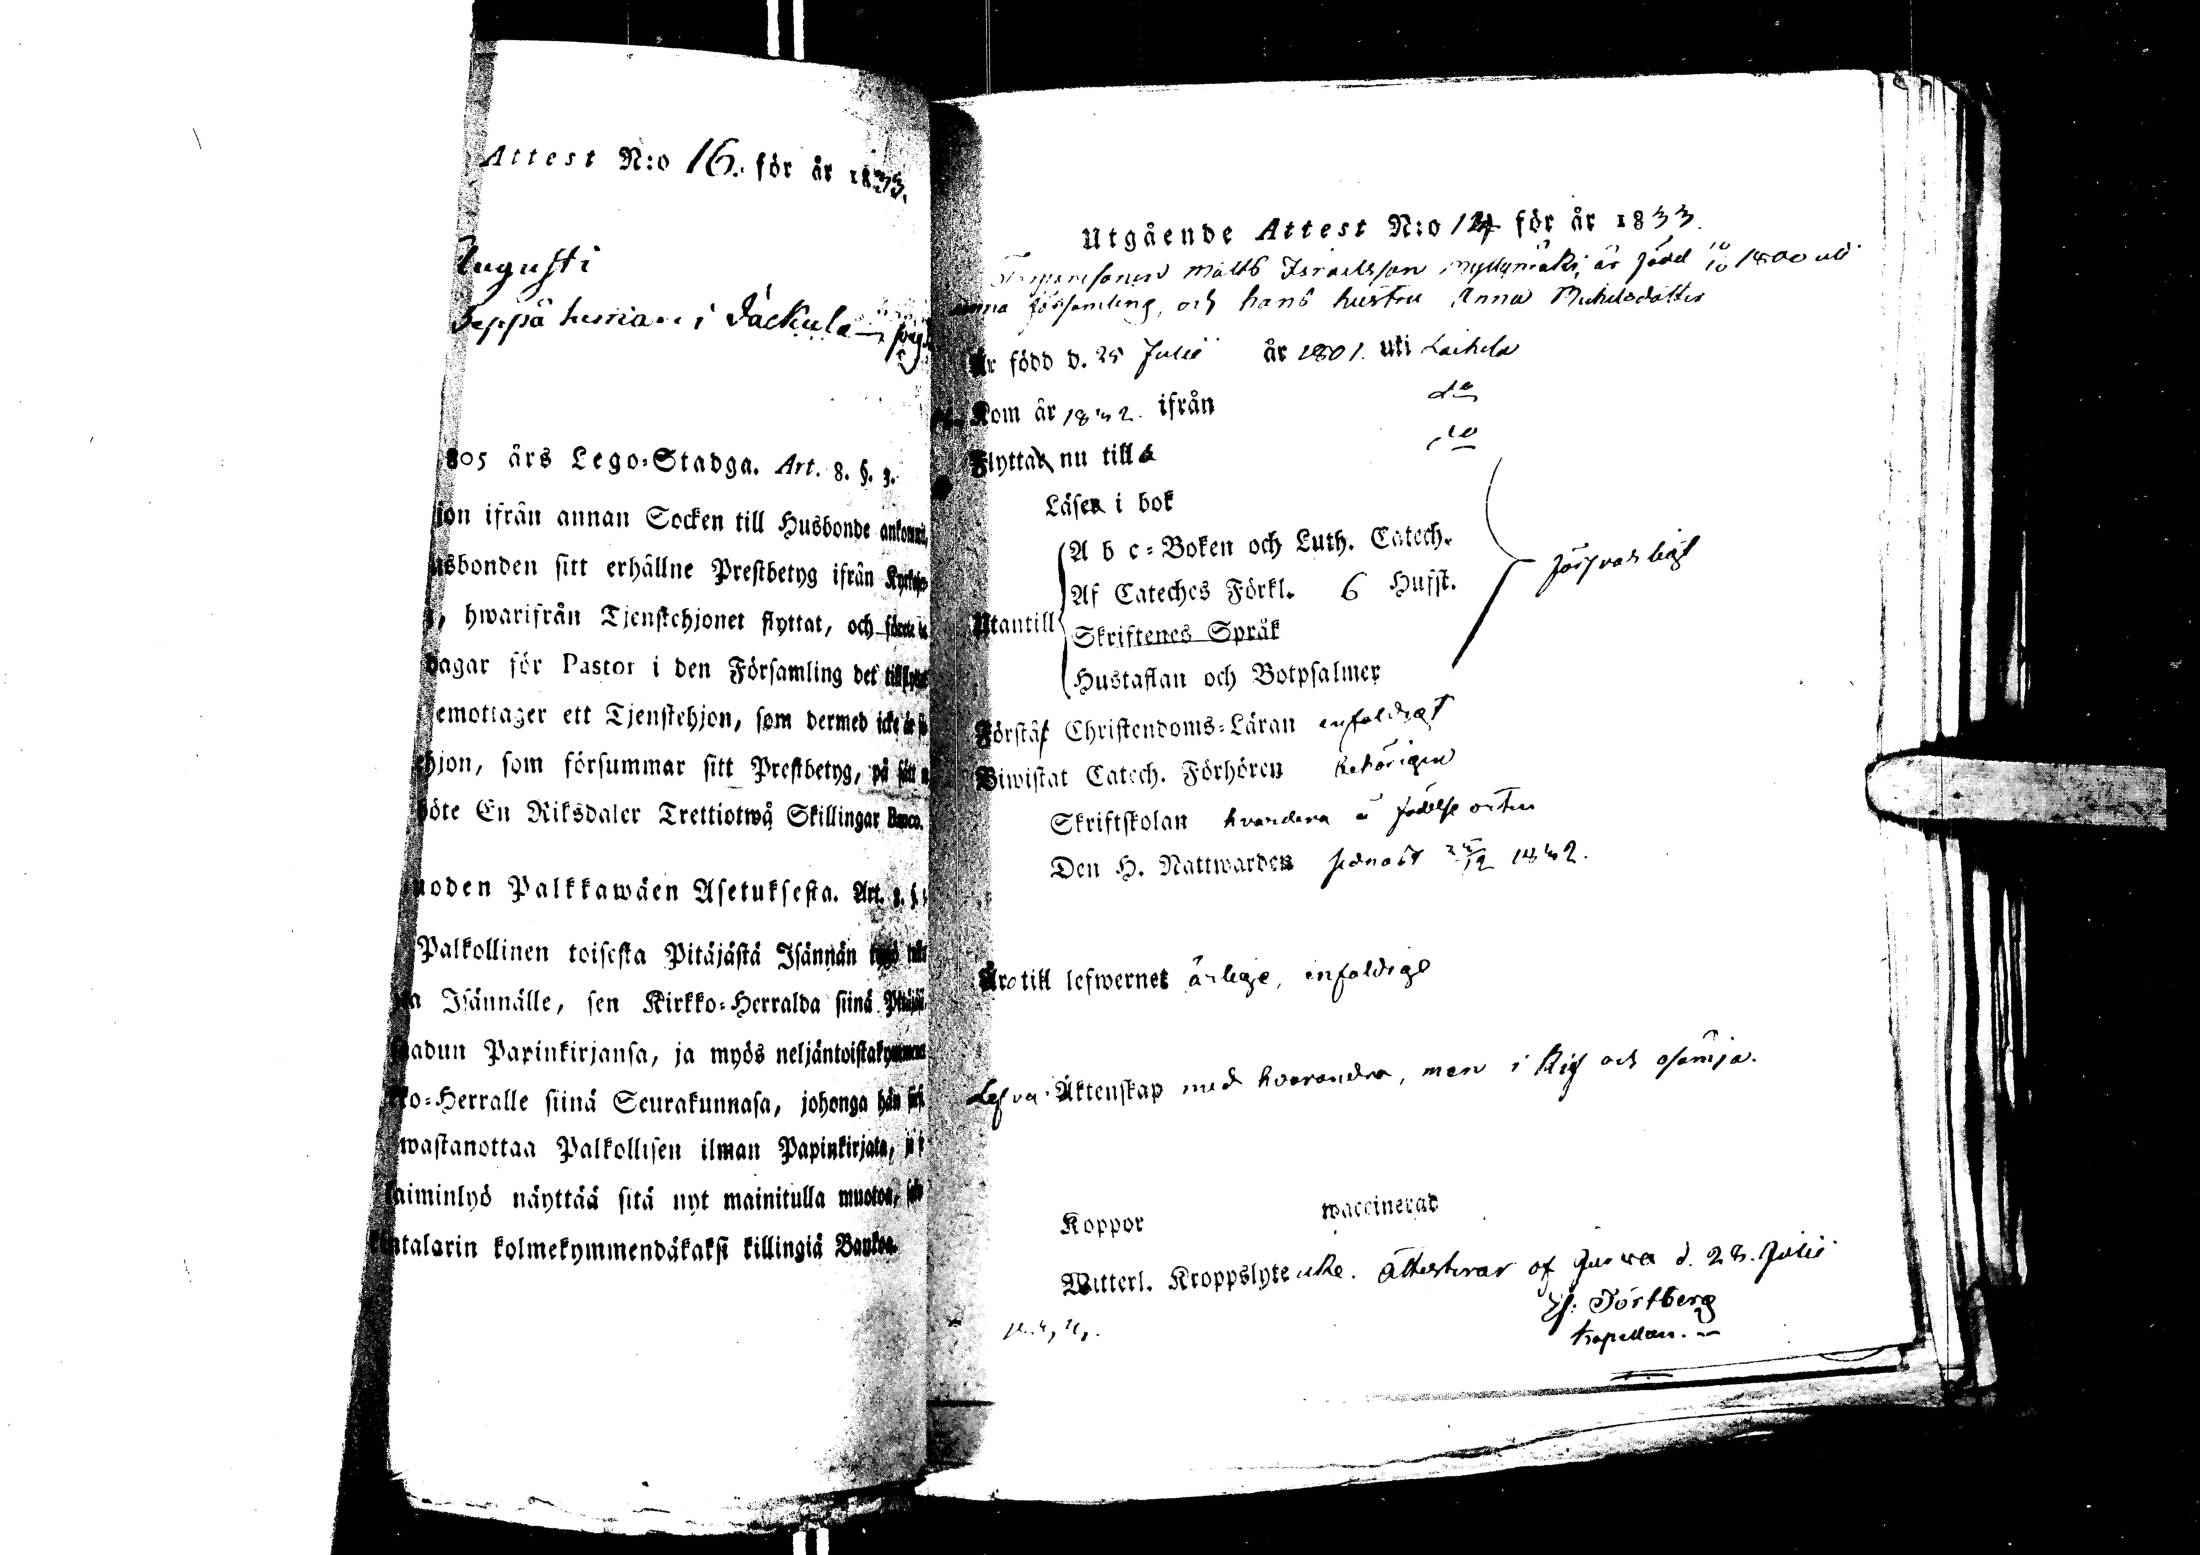 Attest N:o 16. för år 1833.
Augusti
Seppä i Jäckula
805 års Lego-Stadga. Art. 8. §. 3.
jon ifrån annan Socken till Husbonde ankommit,
usbonden sitt erhållne Prestbetyg ifrån
, hwarifrån Tjenstehjonet flyttat, och
dagar för Pastor i den Församling det
emottager ett Tjenstehjon, som dermed icke är
hjon, som försummar sitt Prestbetyg, på sätt
böte En Riksdaler Trettiotwå Skillingar Banco.
uoden Palkkawäen Asetuksesta. Art. 8. §.
Palkollinen toisesta Pitäjästä Isännän
Isännälle, sen Kirkko-Herralda siinä
adun Papinkirjansa, ja myös neljäntoistakymmenen
ko-Herralle siinä Seurakunnasa, johonga hän
wastanottaa Palkollisen ilman Papinkirjata, ja
aiminlyö näyttää sitä nyt mainitulla muotoa,
talarin kolmekymmendäkaksi killingiä Bankoa.
Utgående Attest N:o 14 för år 1833.
Matts Israelsson Myllymäki, är född 10/10 1800 uti
denna församling, och hans hustru Anna Michelsdotter
Är född d. 25 Julii år 1801. uti Laihela
Kom år 1832. ifrån do
Flytta nu till do
Läsa i bok
A b c-Boken och Luth. Catech.
Af Cateches Förkl. 6 Hufst. försvarligt
Utantill
Skriftenes Språk
Hustaflan och Botpsalmer
Förstå Christendoms-Läran enfaldigt
Biwistat Catech. Förhören behörigen
Skriftskolan hvardera å födelse orten
Den H. Nattwarden sednast 26/12 1832.
Äro till lefwernet ärlige, enfaldige
Lefva i Äktenskap med hvarandra, men i kif och osämja.
Koppor waccinerad
Witterl. Kroppslyte icke. Attesterar af Jurva d. 28. Julii
Törtberg
kapellan.